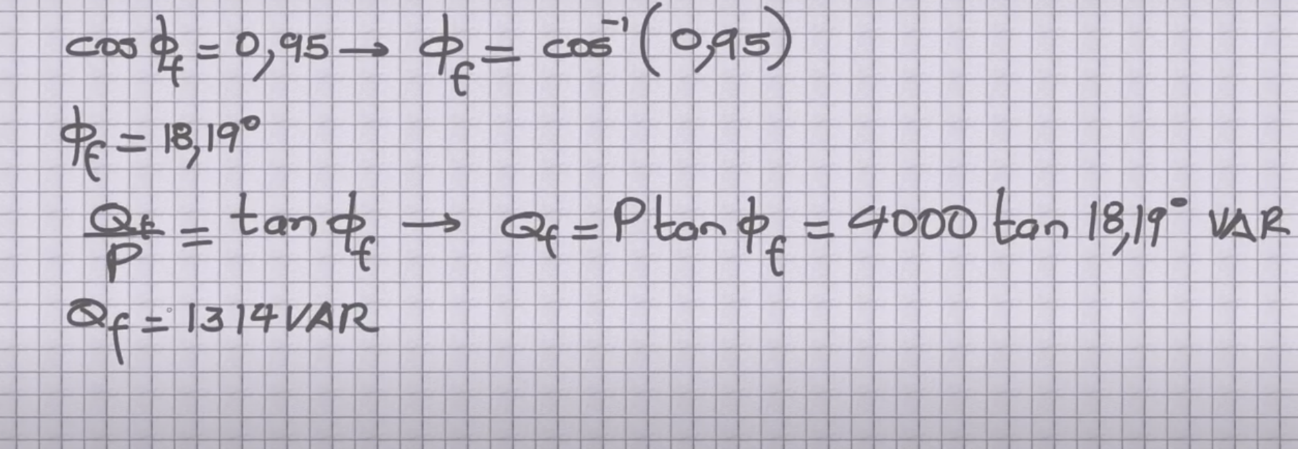 cos ϕf = 0,95 → ϕf = cos⁻¹(0,95)
ϕf = 18,19°
Qf/P = tan ϕf → Qf = P tan ϕf = 4000 tan 18,19° VAR
Qf = 1314 VAR